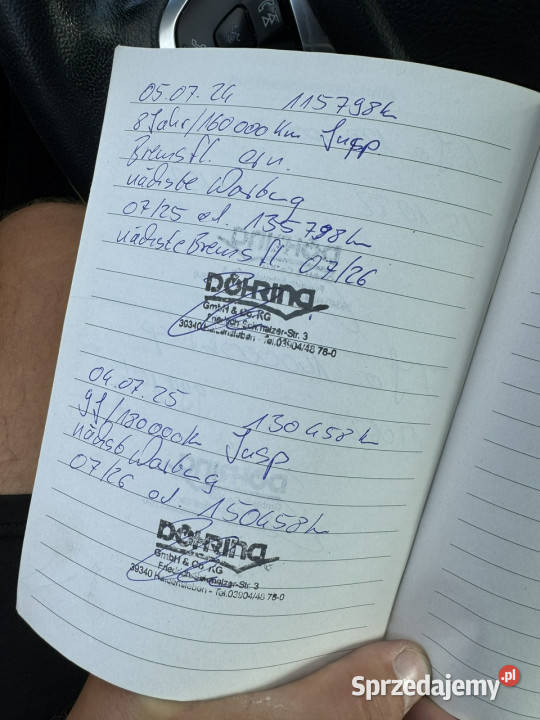 05.07.24 115798k
8 Jahr/160000Km Insp
Bremsfl. ern.
nächste Wartung
07/25 od. 135798k
nächste Bremsfl 07/26
DÖHRING
GmbH & Co. KG
Friedrich-Schmelzer-Str. 3
39340 Haldensleben - Tel.03904/48 78-0
04.07.25 130458k
9J/180000k Insp
nächste Wartung
07/26 od. 150458k
DÖHRING
GmbH & Co. KG
Friedrich-Schmelzer-Str. 3
39340 Haldensleben - Tel.03904/48 78-0
Sprzedajemy.pl